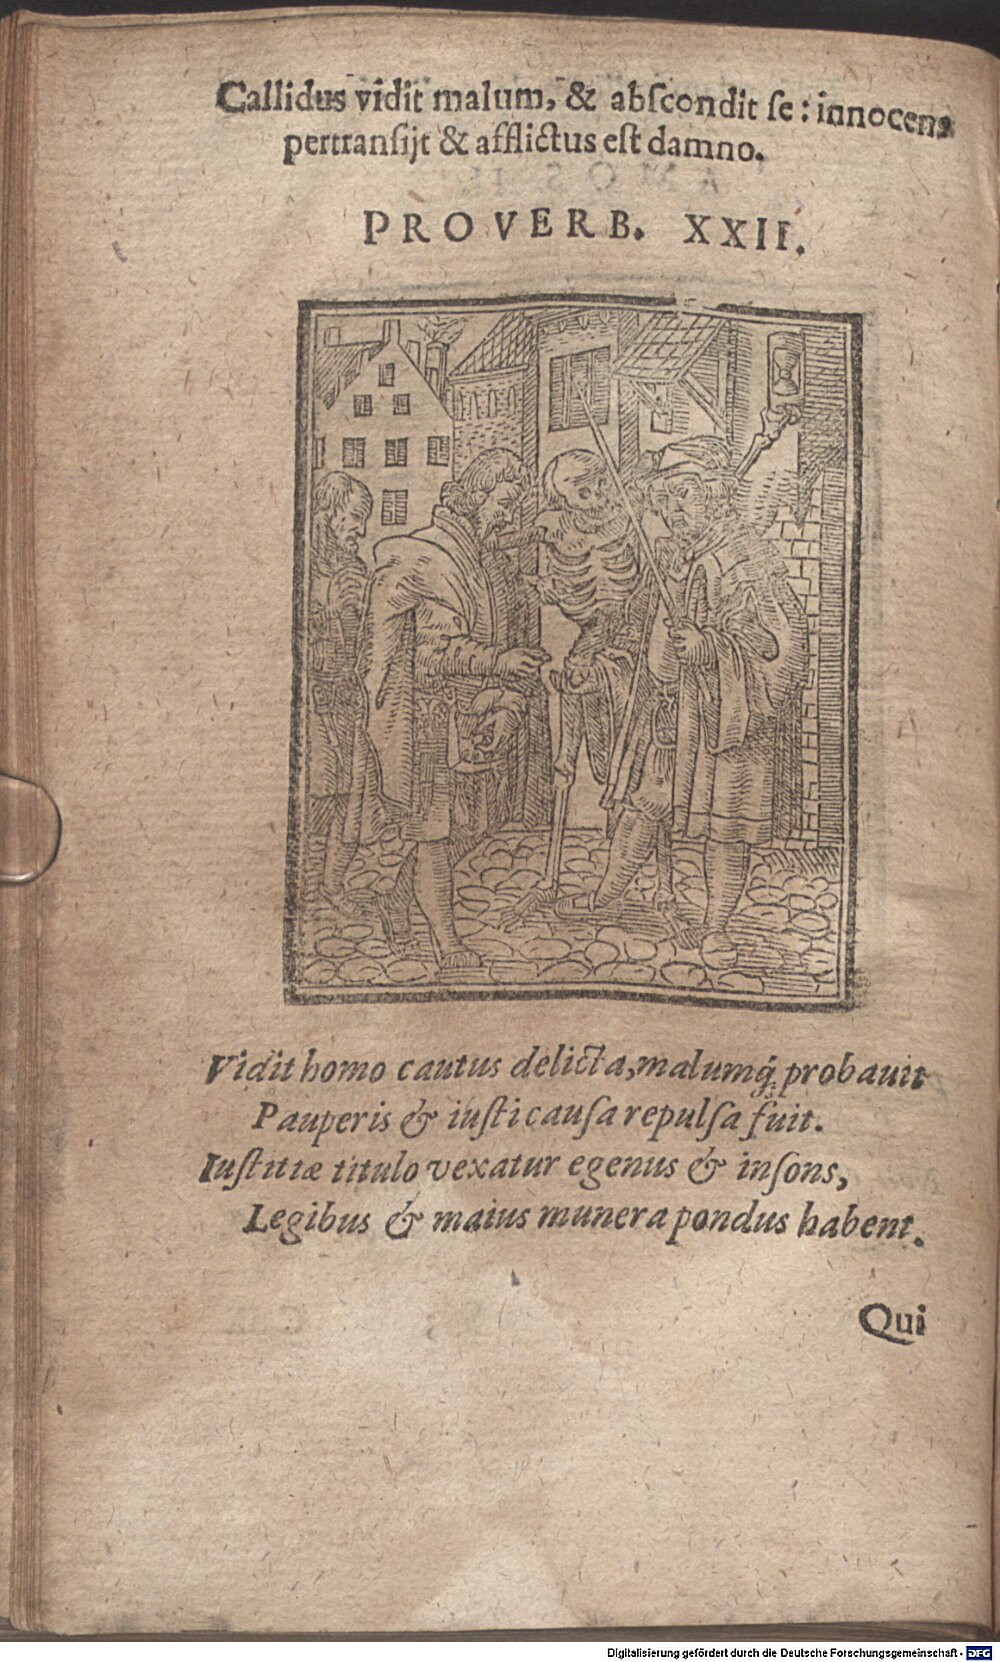 Callidus vidit malum, & abſcondit ſe: innocens
pertranſijt & afflictus eſt damno.
PROVERB. XXII.
Vidit homo cautus delicta, malumq́; probauit
Pauperis & iuſti cauſa repulſa fuit.
Iuſtitiæ titulo vexatur egenus & inſons,
Legibus & maius munera pondus habent.
Qui
Digitalisierung gefördert durch die Deutsche Forschungsgemeinschaft - DFG